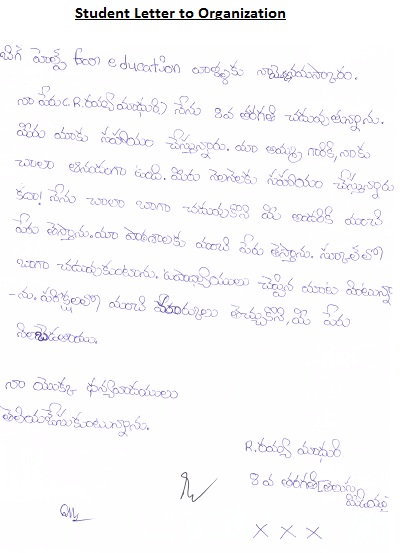 Student Letter to Organization
బిగ్ హెల్ప్ for education వాళ్ళకు నా నమస్కారం.
నా పేరు (R.రమ్య మాధురి) నేను 8వ తరగతి చదువుతున్నాను.
మీరు మాకు సహాయం చేస్తున్నారు. మా అమ్మ గారికి, నాకు
చాలా ఆనందంగా ఉంది. మీరు నెలనెలకు సహాయం చేస్తున్నారు
కదా! నేను చాలా బాగా చదువుకొని మీ అందరికి మంచి
పేరు తెస్తాను. మా పాఠశాలకు మంచి పేరు తెస్తాను. స్కూల్‌లో
బాగా చదువుకుంటాను. ఉపాధ్యాయులు చెప్పిన మాట వింటున్నా
-ను. పరీక్షలలో మంచి మార్కులు తెచ్చుకొని, మీ పేరు
నిలబెడతాను.
నా యొక్క ధన్యవాదములు
తెలియజేసుకుంటున్నాను.
R.రమ్య మాధురి
8 వ తరగతి [తెలుగు
మీడియం]
X X X